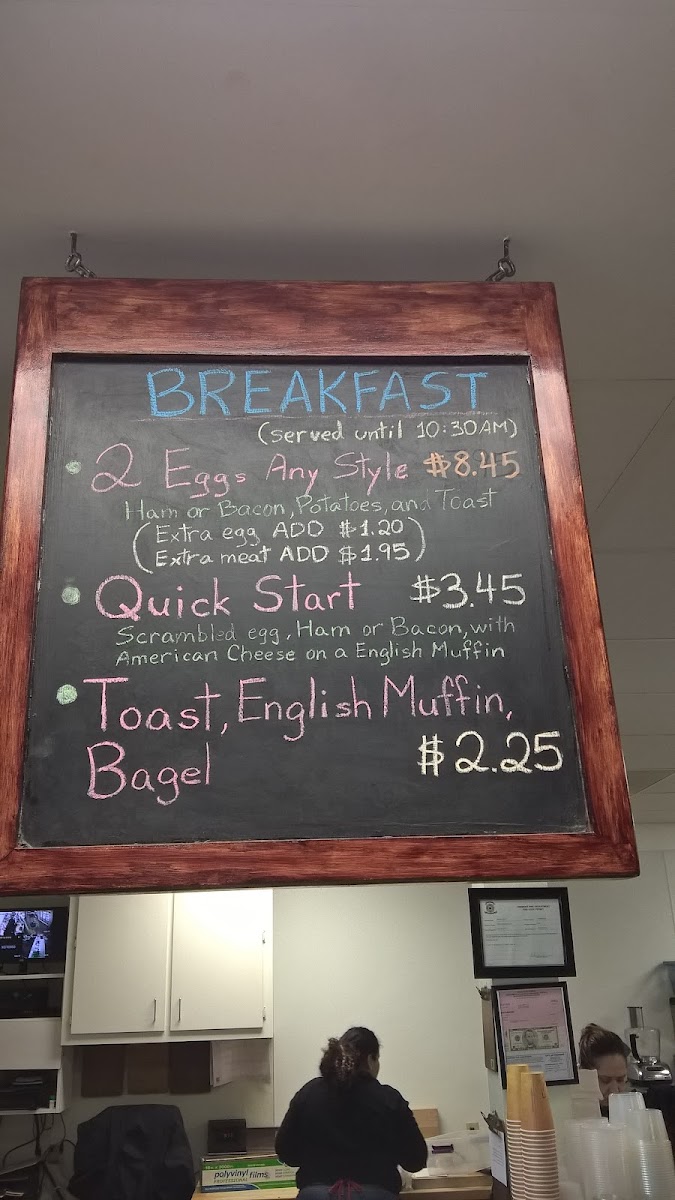 BREAKFAST
(served until 10:30AM)
2 Eggs Any Style $8.45
Ham or Bacon, Potatoes, and Toast
(Extra egg ADD $1.20
Extra meat ADD $1.95)
Quick Start $3.45
Scrambled egg, Ham or Bacon, with
American Cheese on a English Muffin
Toast, English Muffin,
Bagel $2.25
polyvinyl films
PROFESSIONAL